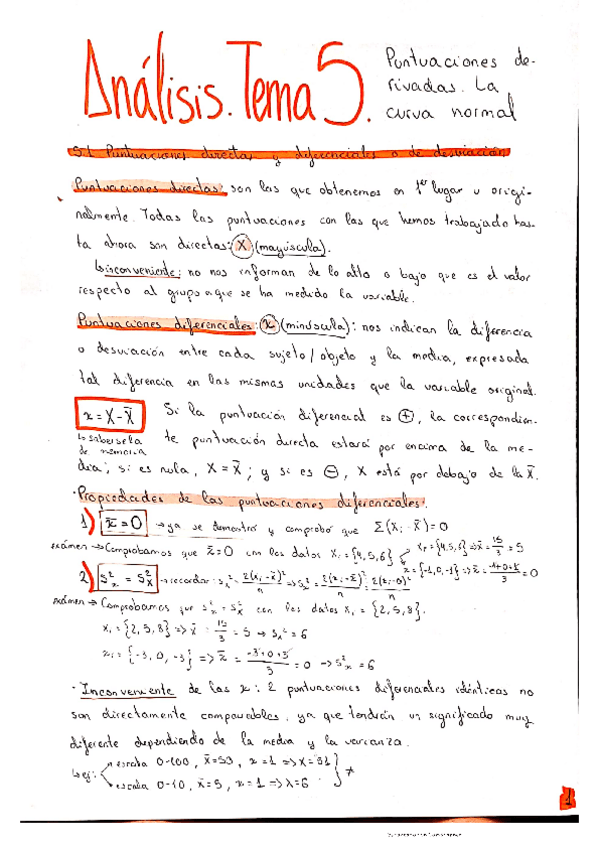 Análisis. Tema 5.
Puntuaciones de-
rivadas. La
curva normal
5.1 Puntuaciones directas y diferenciales o de desviación
Puntuaciones directas: son las que obtenemos en 1er lugar u origi-
nalmente. Todas las puntuaciones con las que hemos trabajado has-
ta ahora son directas: X (mayúscula).
↳ inconveniente: no nos informan de lo alto o bajo que es el valor
respecto al grupo en que se ha medido la variable.
Puntuaciones diferenciales: x (minúscula): nos indican la diferencia
o desviación entre cada sujeto/objeto y la media, expresada
tal diferencia en las mismas unidades que la variable original.
x = X - X̄
↳ sabersela
de memoria
Si la puntuación diferencial es ⊕, la correspondien-
te puntuación directa estará por encima de la me-
dia; si es nula, X = X̄; y si es ⊖, X está por debajo de la X̄.
· Propiedades de las puntuaciones diferenciales:
1) x̄ = 0 → ya se demostró y comprobó que Σ(Xi - X̄) = 0
exámen → Comprobamos que x̄ = 0 con los datos Xi = {4, 5, 6}
Xi = {4, 5, 6} => x̄ = 15/3 = 5
x = {-1, 0, -1} => x̄ = -1+0+1/3 = 0
2) S²x = S²X → recordar: Sx² = Σ(Xi - X̄)²/n => Sx² = Σ(xi - x̄)²/n = Σ(xi - 0)²/n
exámen → Comprobamos que S²x = S²X con los datos Xi = {2, 5, 8}.
Xi = {2, 5, 8} => x̄ = 15/3 = 5 → Sx² = 6
xi = {-3, 0, -3} => x̄ = -3+0+3/3 = 0 → S²x = 6
· Inconveniente de las x: 2 puntuaciones diferenciales idénticas no
son directamente comparables, ya que tendrán un significado muy
diferente dependiendo de la media y la varianza.
↳ ej:
escala 0-100, x̄ = 50, x = 1 => X = 51
escala 0-10, x̄ = 5, x = 1 => X = 6
} ≠
1